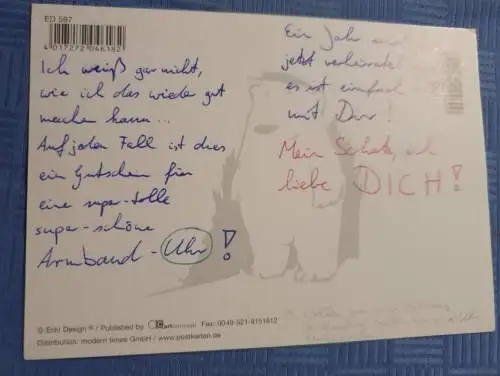 ED 597
4 017272 046182
Ich weiß gar nicht,
wie ich das wieder gut
machen kann...
Auf jeden Fall ist dies
ein Gutschein für
eine super-tolle
super-schöne
Armband-Uhr!
Ein Jahr
jetzt verheiratet
es ist einfach
mit Dir!
Mein Schatz, ich
liebe DICH!
© Echi Design ® / Published by Fax: 0049-521-9151612
Distribution: modern times GmbH / www.postkarten.de